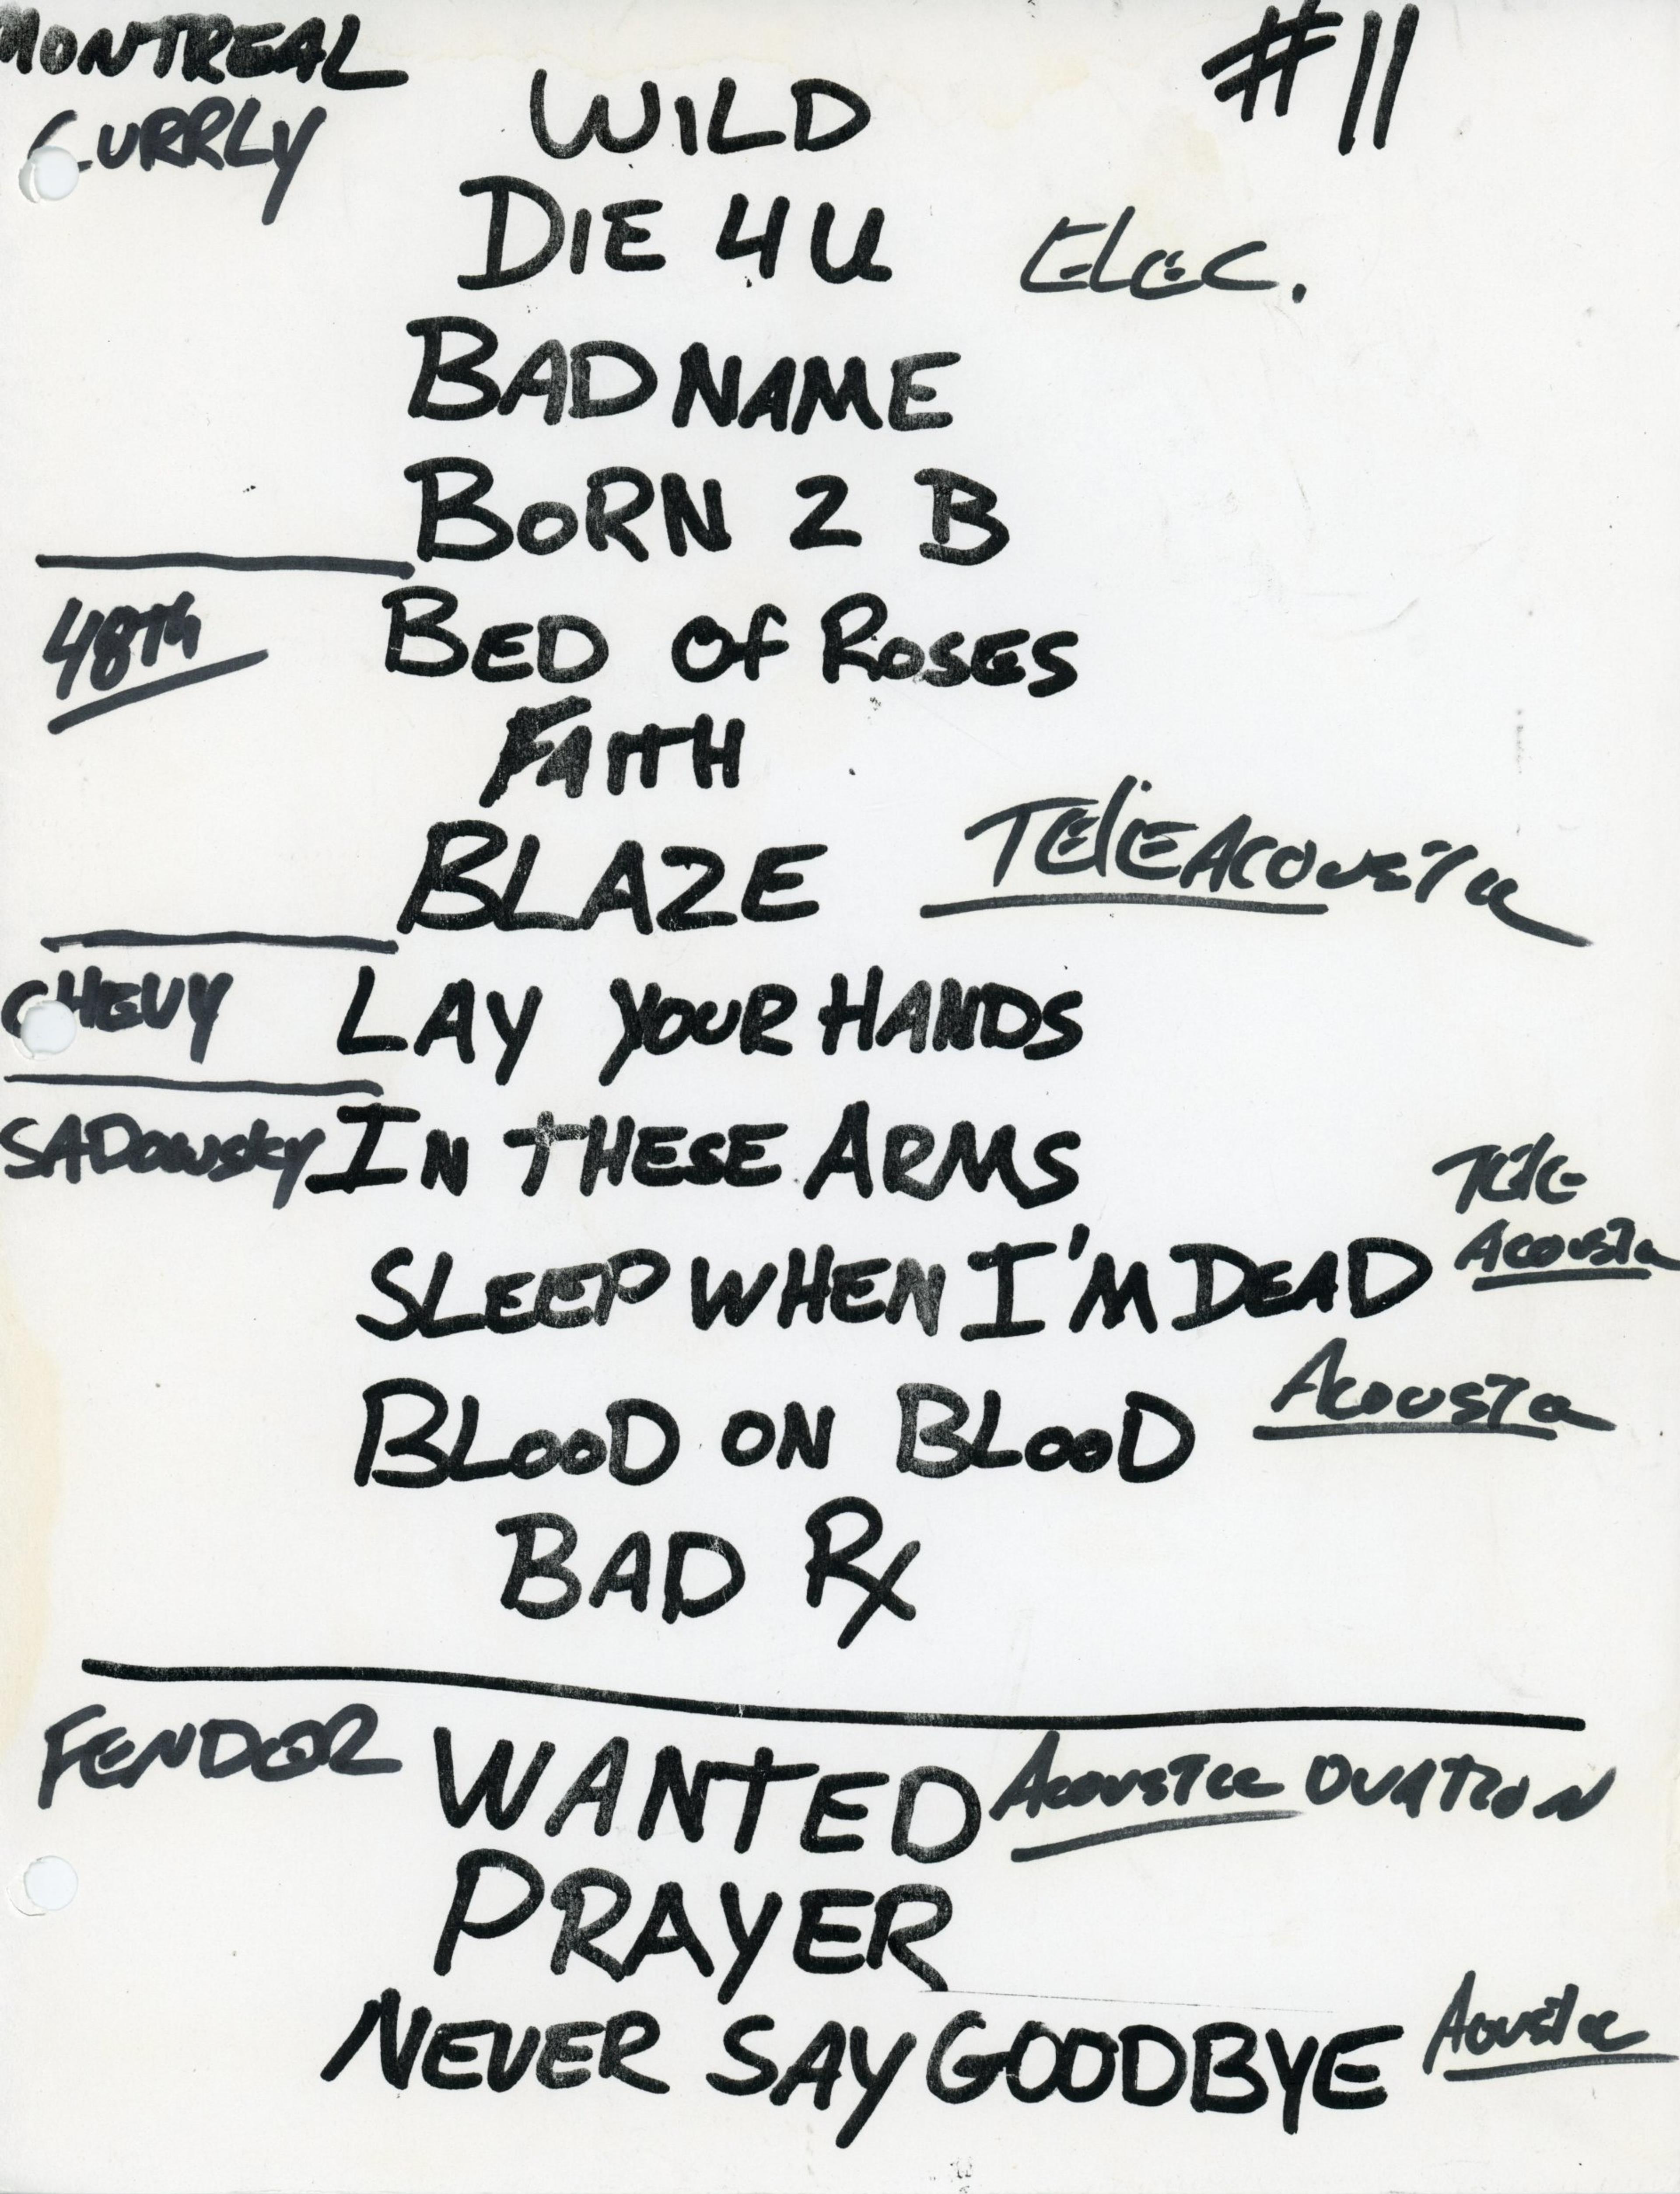 MONTREAL
#11
CURRLY
WILD
DIE 4 U
ELEC.
BAD NAME
BORN 2 B
48TH
BED OF ROSES
FAITH
BLAZE
TELE ACOUSTIC
CHEVY
LAY YOUR HANDS
SADOWSKY
IN THESE ARMS
TELE
ACOUSTIC
SLEEP WHEN I'M DEAD
BLOOD ON BLOOD
ACOUSTIC
BAD RX
FENDER
WANTED
ACOUSTIC OVATION
PRAYER
NEVER SAY GOODBYE
ACOUSTIC